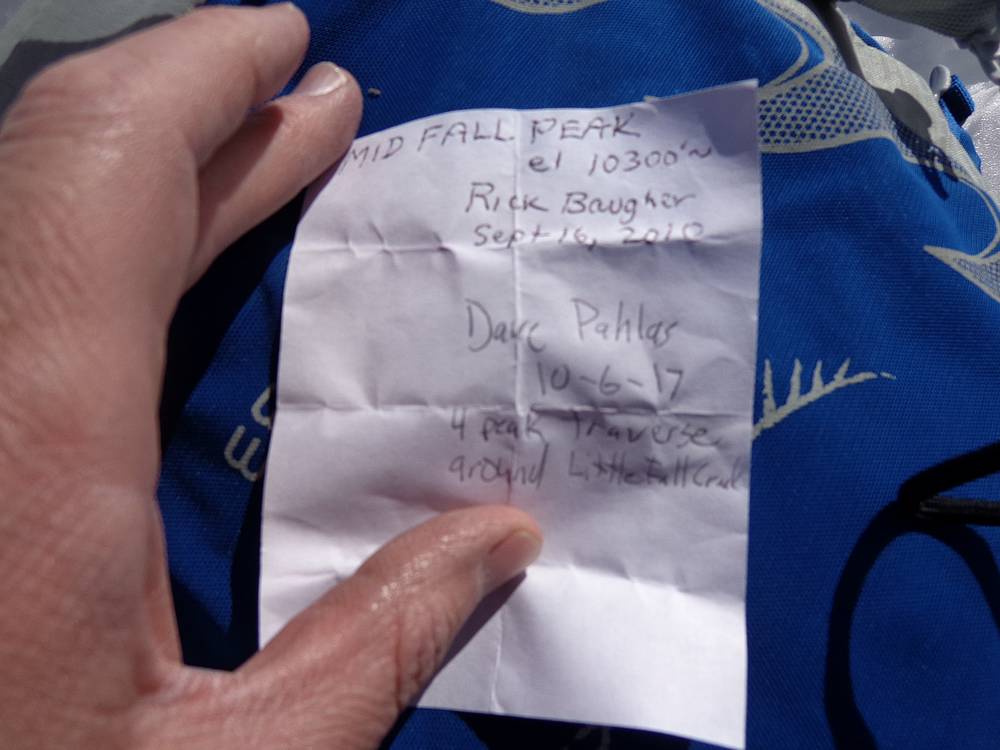 MID FALL PEAK
el 10300'~
Rick Baugher
Sept 16, 2010
Dave Pahlas
10-6-17
4 peak Traverse
around Little Fall Creek